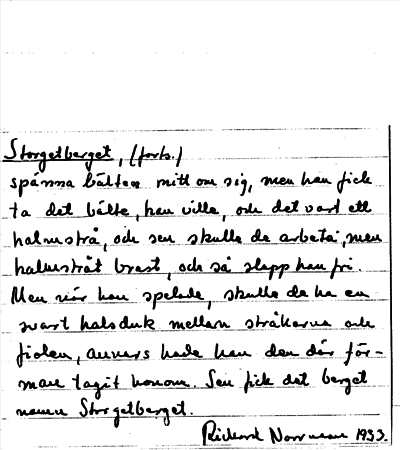 Storgetberget, (forts.)
spänna bälten mitt om sig, men han fick
ta det bälte, han ville, och det vart ett
halmstrå, och sen skulle de arbeta, men
halmstråt brast, och så slapp han fri.
Men när han spelade, skulle de ha en
svart halsduk mellan stråkarna och
fiolen, annars hade han den där för-
man tagit honom. Sen fick det berget
namn Storgetberget.
Richard Norrman 1933.